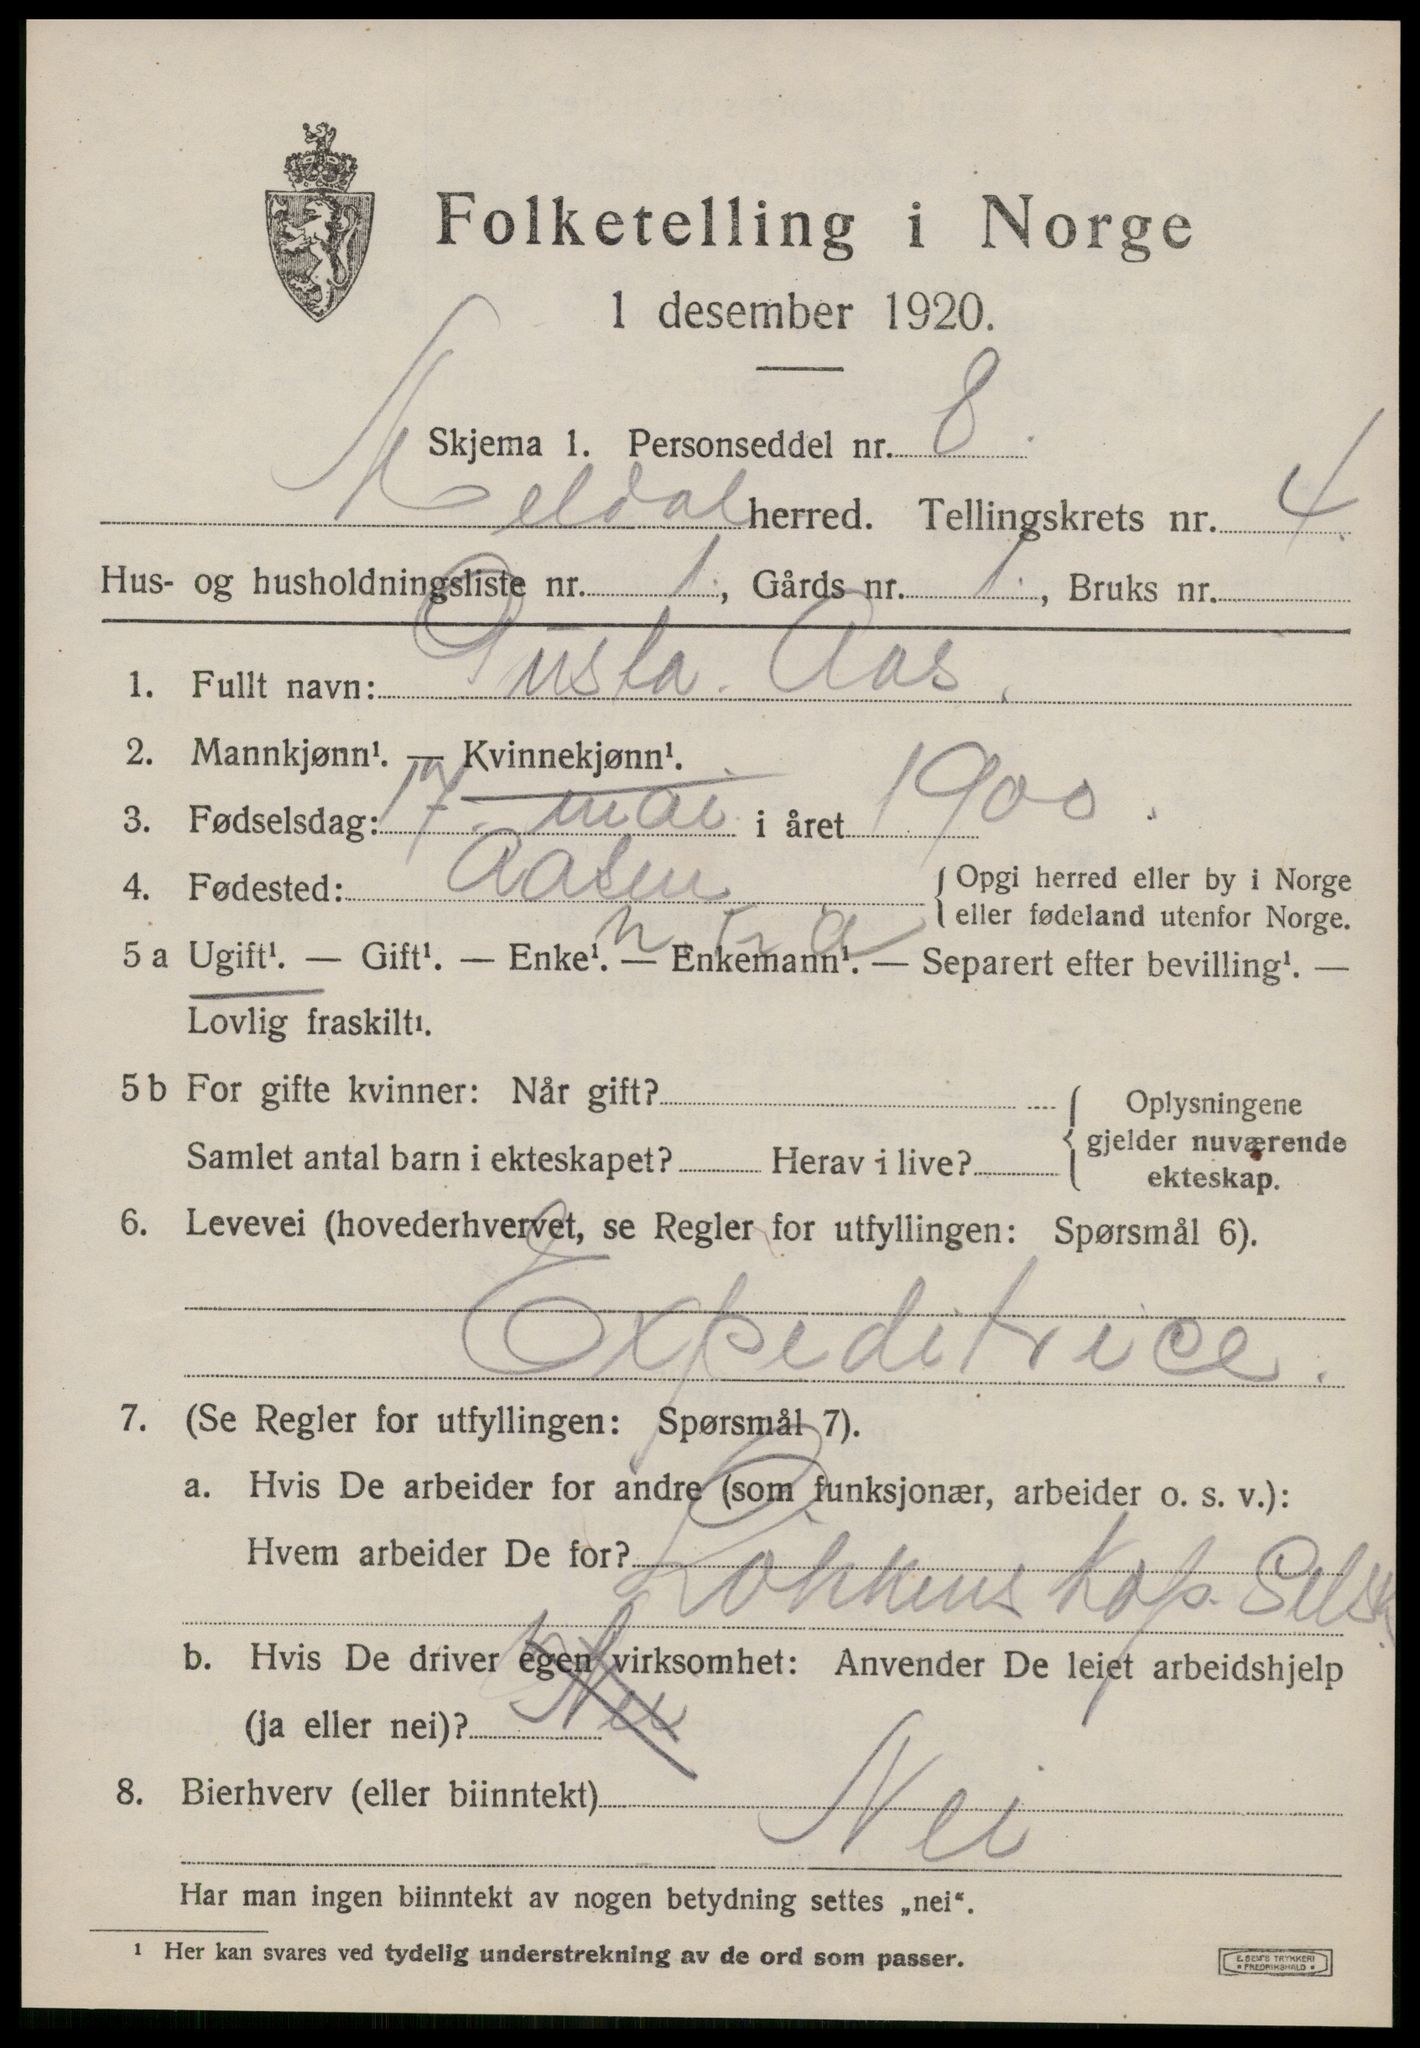 Folketelling i Norge
1 desember 1920.
Skjema 1. Personseddel nr. 8.
Meldal herred. Tellingskrets nr. 4.
Hus- og husholdningsliste nr. 1., Gårds nr. 1., Bruks nr.
1. Fullt navn: Gusta. Aas.
2. Mannkjønn¹. — Kvinnekjønn¹.
3. Fødselsdag: 17. mai i året 1900.
4. Fødested: Aasen { Opgi herred eller by i Norge
eller fødeland utenfor Norge.
5 a Ugift¹. — Gift¹. — Enke¹. — Enkemann¹. — Separert efter bevilling¹. —
Lovlig fraskilt¹.
5 b For gifte kvinner: Når gift? { Oplysningene
gjelder nuværende
Samlet antal barn i ekteskapet? Herav i live?
ekteskap.
6. Levevei (hovederhvervet, se Regler for utfyllingen: Spørsmål 6).
Expeditrice.
7. (Se Regler for utfyllingen: Spørsmål 7).
a. Hvis De arbeider for andre (som funksjonær, arbeider o. s. v.):
Hvem arbeider De for? Lökkens Kop. Selsk.
b. Hvis De driver egen virksomhet: Anvender De leiet arbeidshjelp
(ja eller nei)? Nei
8. Bierhverv (eller biinntekt) Nei
Har man ingen biinntekt av nogen betydning settes „nei“.
¹ Her kan svares ved tydelig understrekning av de ord som passer.
E. SEM'S TRYKKERI
* FREDRIKSHALD *